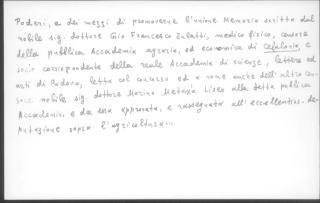 Poderi, e dei mezzi di promoverne l'unione. Memoria scritta dal
nobile sig. dottore Gio Francesco Zulatti, medico fisico, censore
della pubblica Accademia agraria, ed economica di Cefalonia, e
socio corrispondente della reale Accademia di scienze, lettere ed
arti di Padova, letta col concorso ed a nome anche dell'altro cen-
sore nobile sig. dottore Marino Metaxà Liseo alla detta pubblica
Accademia, e da essa approvata, e rassegnata all'eccellentiss. de-
putazione sopra l'agricoltura.